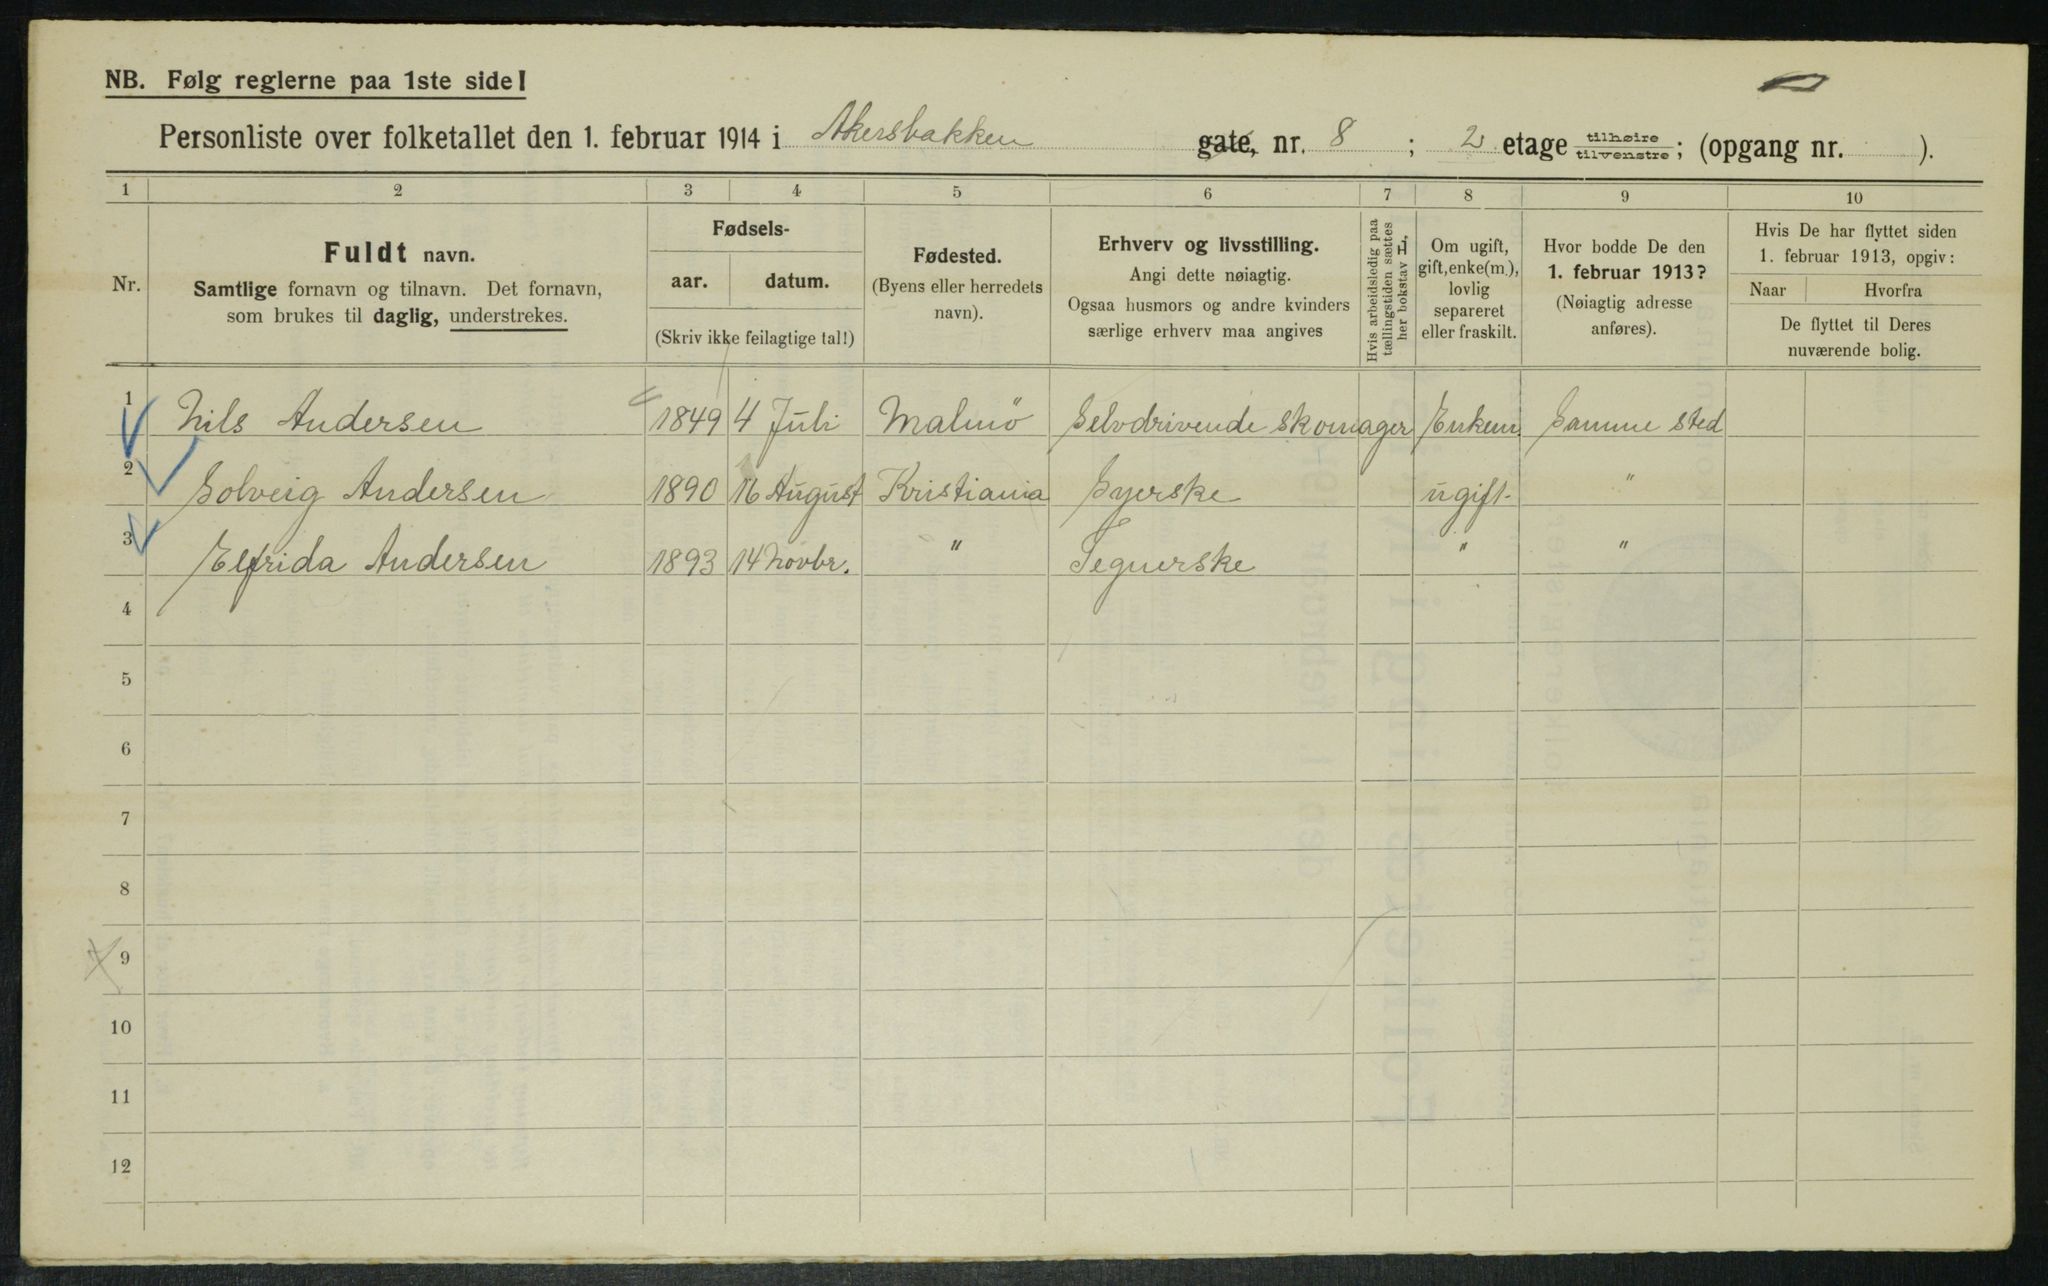 NB. Følg reglerne paa 1ste side!
Personliste over folketallet den 1. februar 1914 i Akersbakken gate, nr. 8 ; 2 etage tilhøire tilvenstre; (opgang nr. ).
1 2 3 4 5 6 7 8 9 10
Nr.
Fuldt navn.
Samtlige fornavn og tilnavn. Det fornavn,
som brukes til daglig, understrekes.
Fødsels-
aar. datum.
(Skriv ikke feilagtige tal!)
Fødested.
(Byens eller herredets
navn).
Erhverv og livsstilling.
Angi dette nøiagtig.
Ogsaa husmors og andre kvinders
særlige erhverv maa angives
Hvis arbeidsledig paa
tællingstiden sættes
her bokstav L.
Om ugift,
gift, enke(m.),
lovlig
separeret
eller fraskilt.
Hvor bodde De den
1. februar 1913?
(Nøiagtig adresse
anføres).
Hvis De har flyttet siden
1. februar 1913, opgiv:
Naar Hvorfra
De flyttet til Deres
nuværende bolig.
1 Nils Andersen 1849 4 Juli Malmö Selvdrivende skomager Enkem. Samme sted
2 Solveig Andersen 1890 16 August Kristiania Syerske ugift. "
3 Elfrida Andersen 1893 14 Novbr. " Tegnerske " "
4
5
6
7
8
9
10
11
12